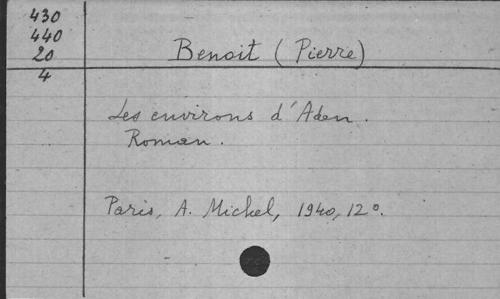 430
440
20
4
Benoit (Pierre)
Les environs d'Aden.
Roman.
Paris, A. Michel, 1940, 12°.